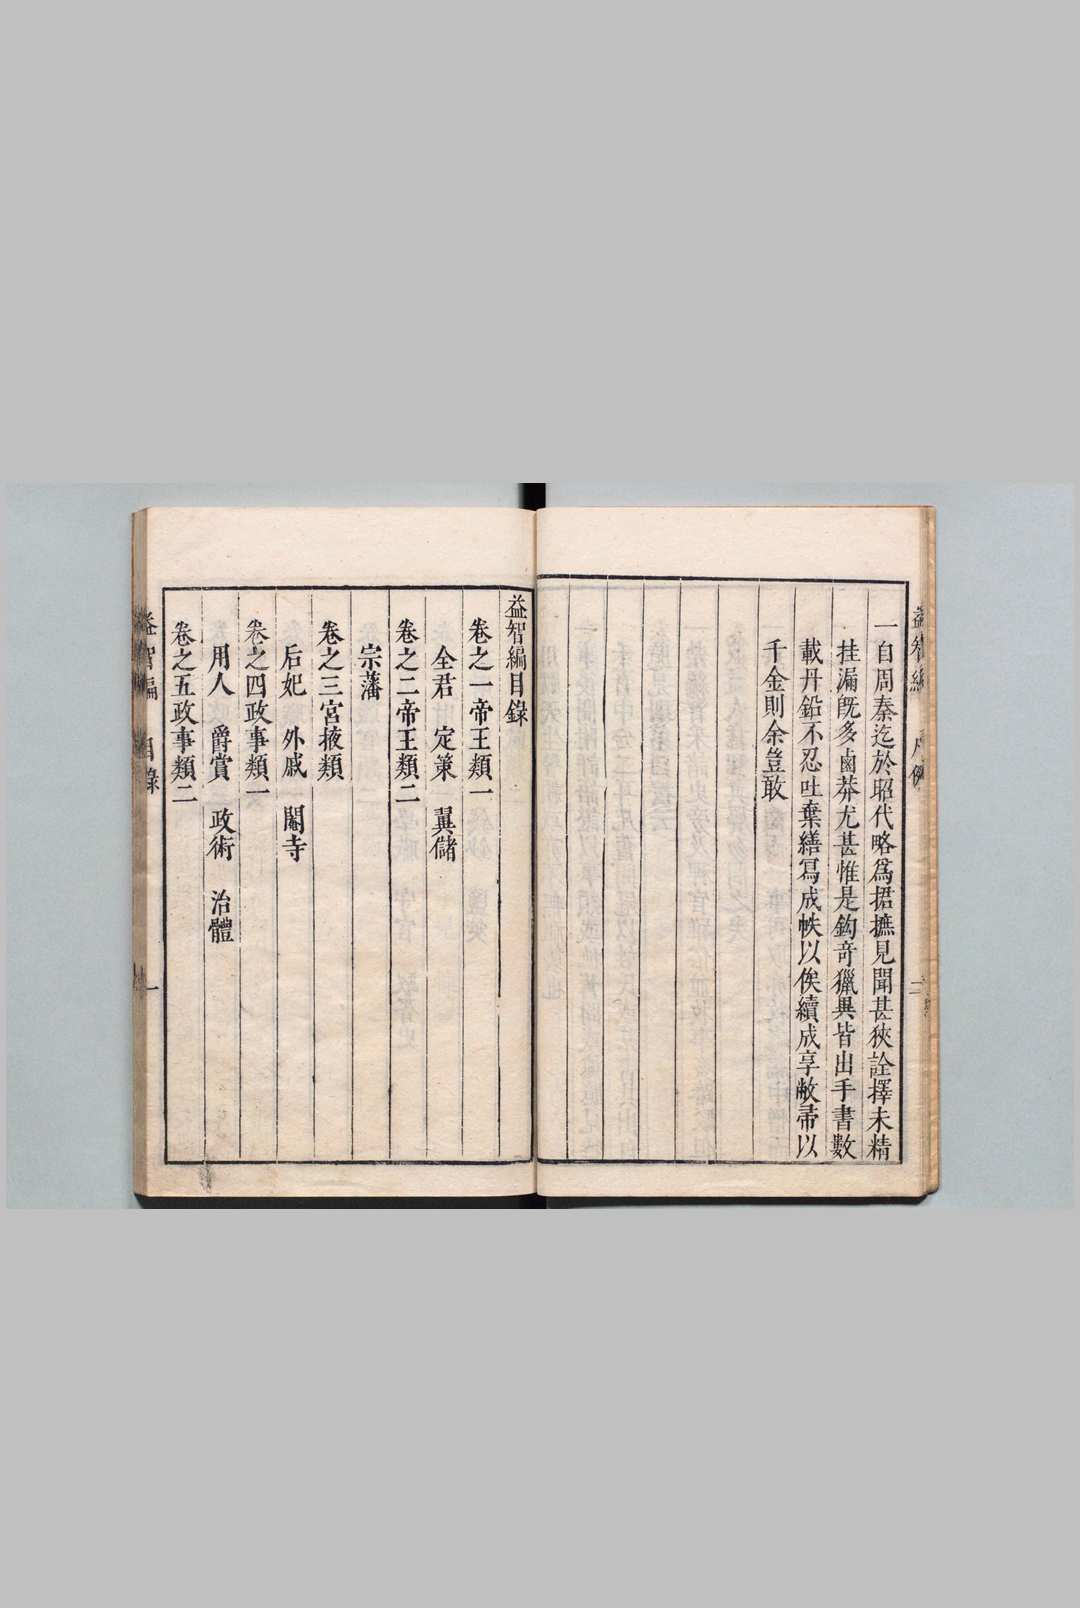 一自周秦迄於昭代略爲捃摭見聞甚狹詮擇未精
挂漏旣多鹵莽尤甚惟是鈎竒獵異皆出手書數
載丹鉛不忍吐棄繕寫成帙以俟續成享敝帚以
千金則余豈敢
益智編目錄
卷之一帝王類一
全君 定策 翼儲
卷之二帝王類二
宗藩
卷之三宮掖類
后妃 外戚 閹寺
卷之四政事類一
用人 爵賞 政術 治體
卷之五政事類二
益智編 目錄 一